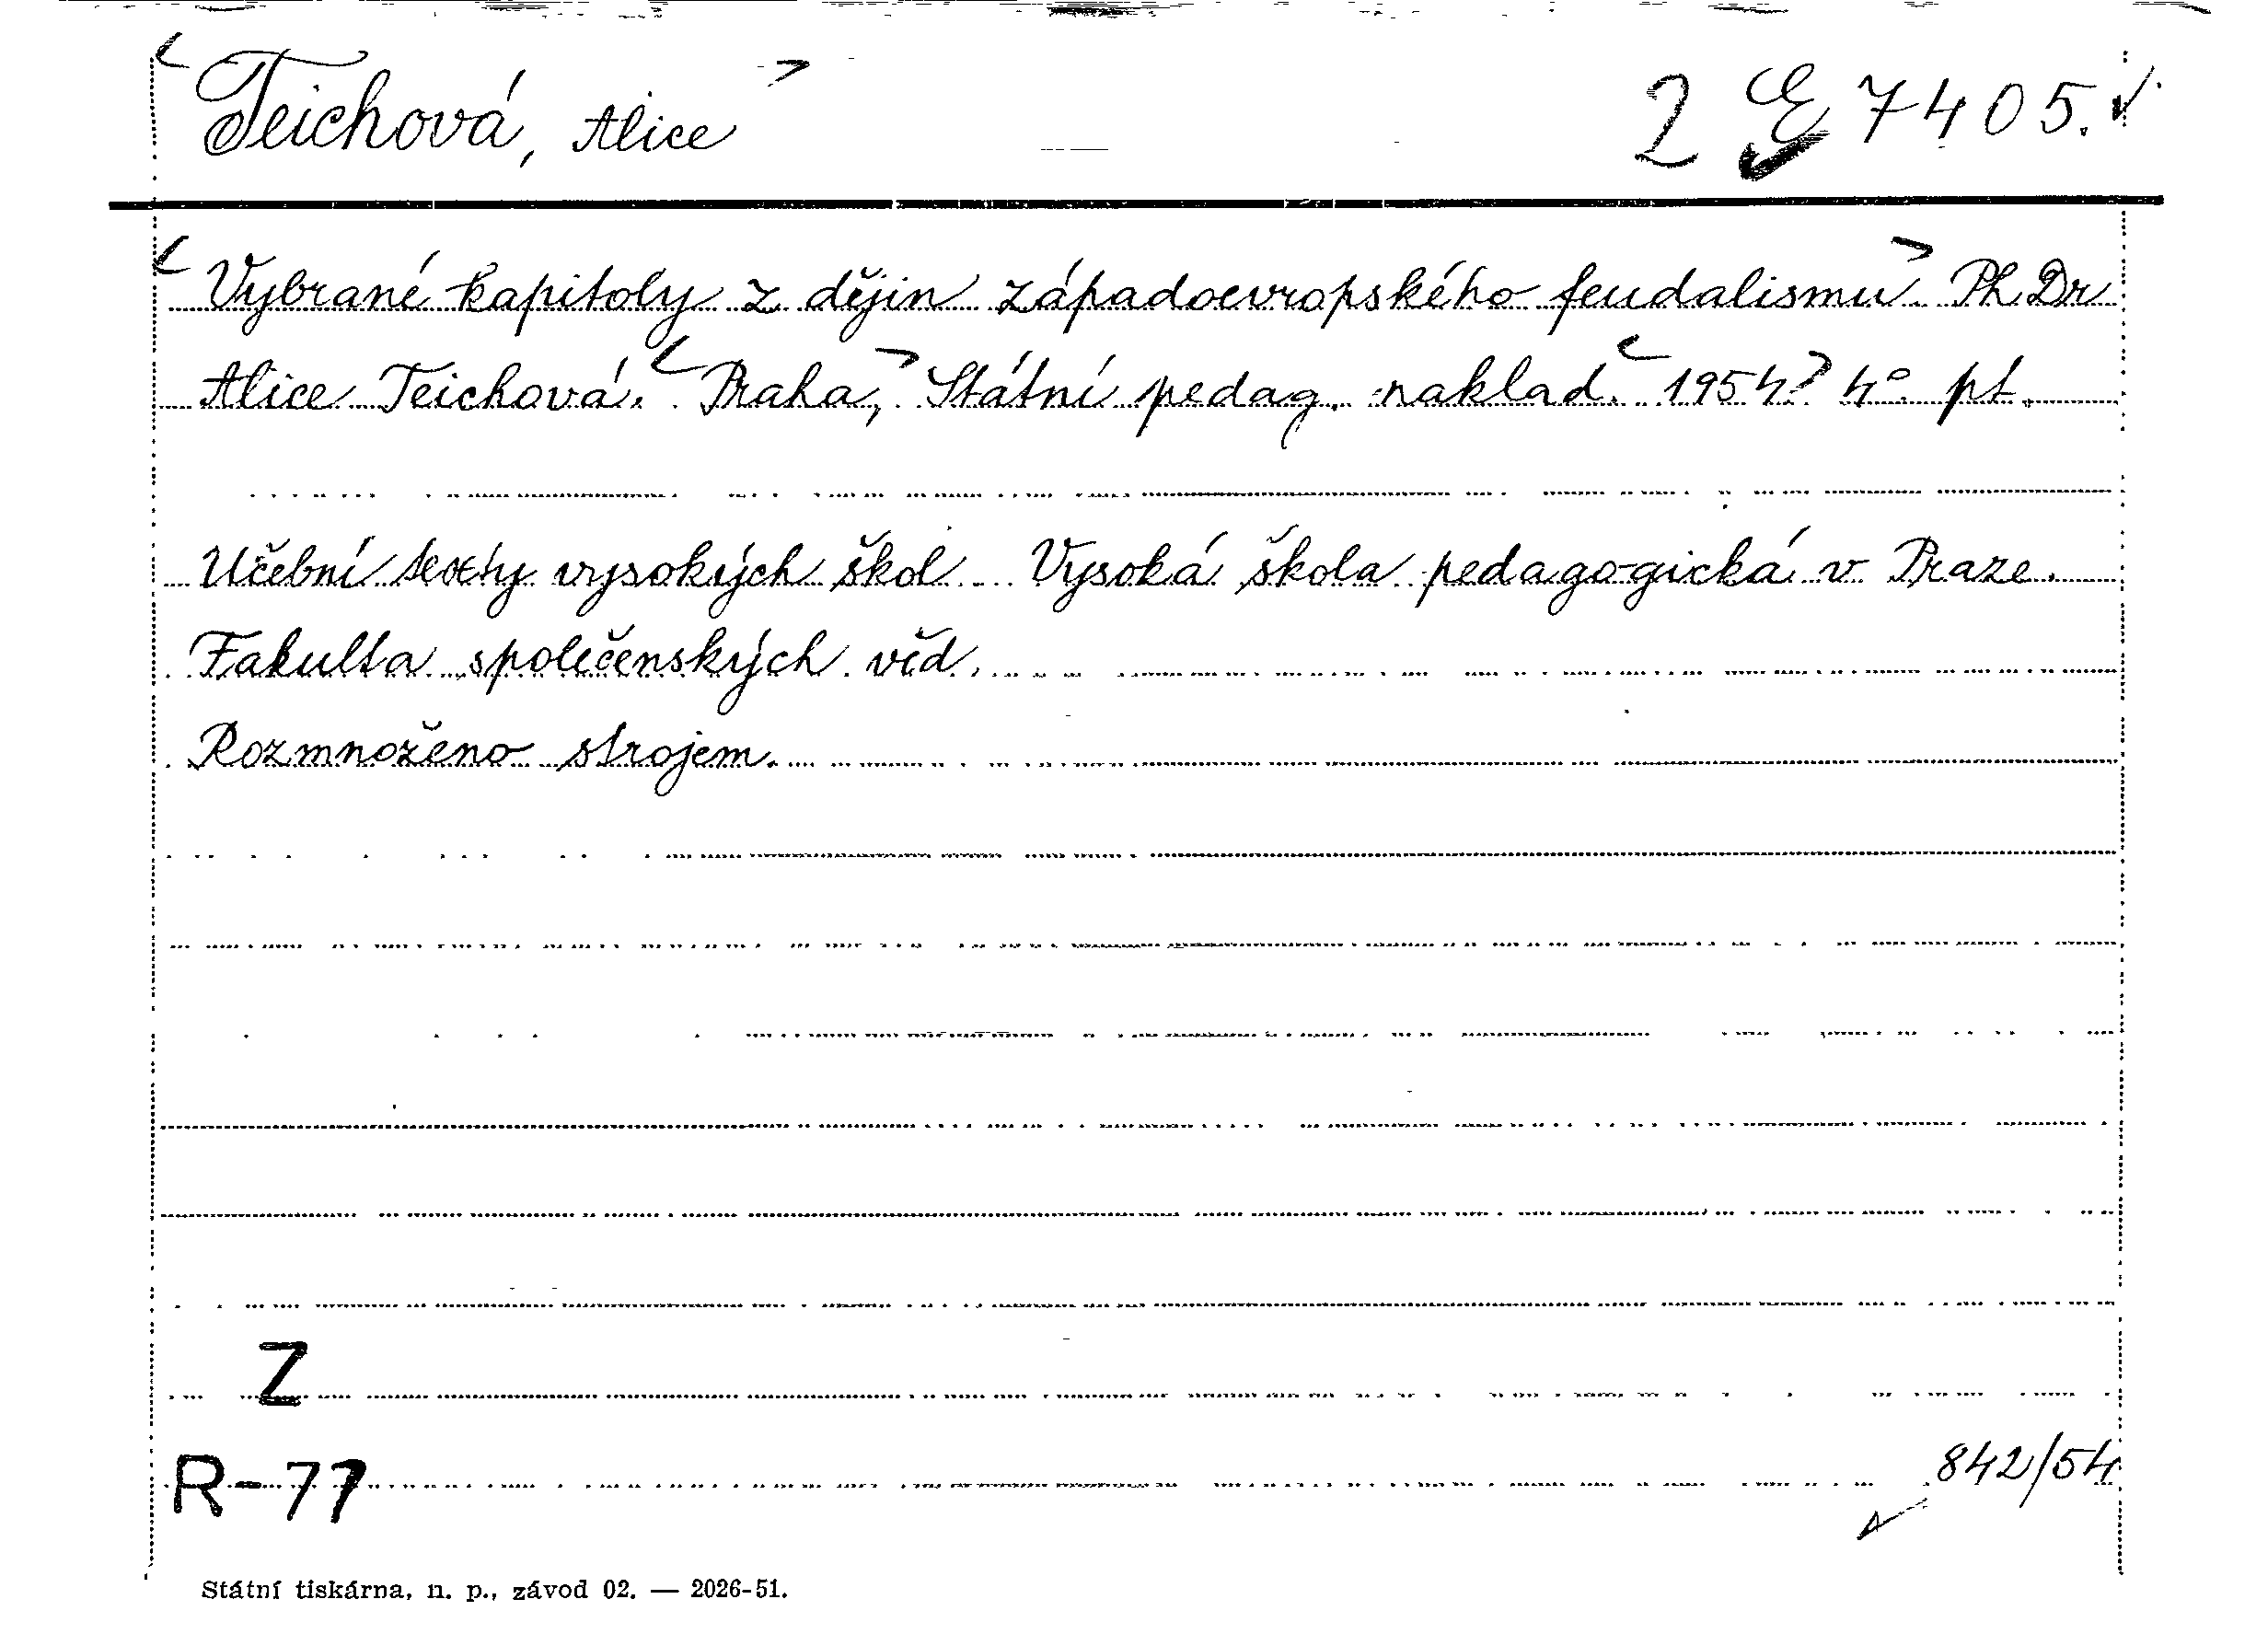 Teichová, Alice 2 E 7405.
Vybrané kapitoly z dějin západoevropského feudalismu. PhDr
Alice Teichová. Praha, Státní pedag. naklad. 1954. 4°. pt.
Učební texty vysokých škol. Vysoká škola pedagogická v Praze.
Fakulta společenských věd.
Rozmnoženo strojem.
Z
R-77 842/54
Státní tiskárna, n. p., závod 02. — 2026-51.